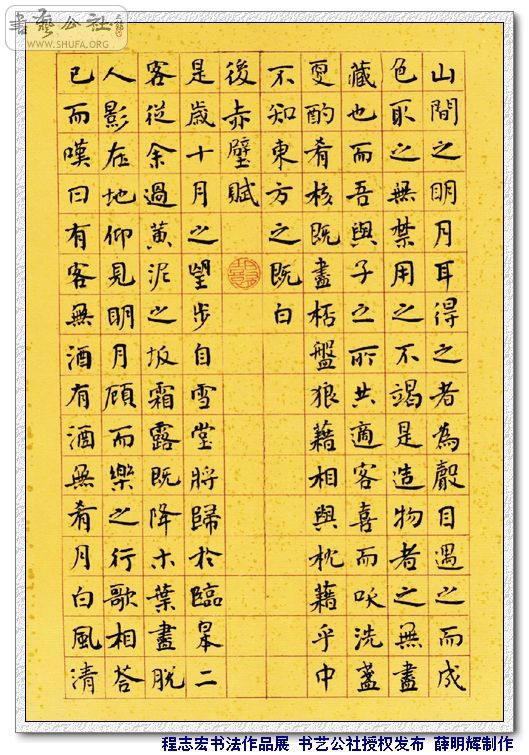 書藝公社
WWW.SHUFA.ORG
山間之明月耳得之者為聲目遇之而成
色取之無禁用之不竭是造物者之無盡
藏也而吾與子之所共適客喜而咲洗盞
更酌肴核既盡桮盤狼藉相與枕藉乎中
不知東方之既白
後赤壁賦
是歲十月之望步自雪堂將歸於臨皋二
客從余過黃泥之坂霜露既降木葉盡脫
人影在地仰見明月顧而樂之行歌相答
已而嘆曰有客無酒有酒無肴月白風清
程志宏书法作品展 书艺公社授权发布 薛明辉制作